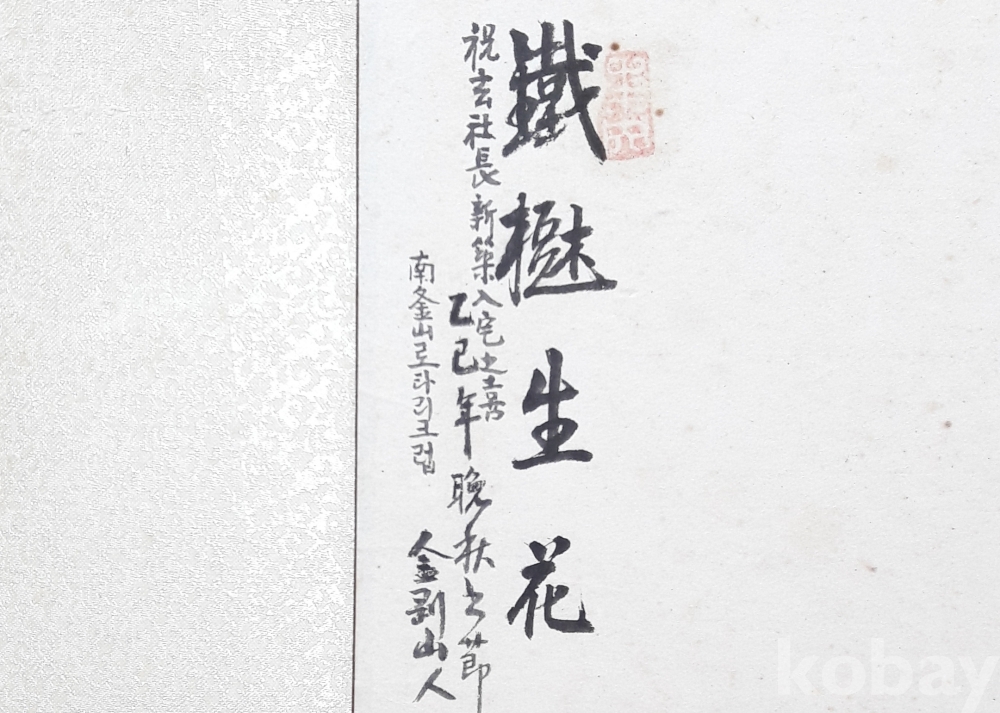 鐵樹生花
祝玄社長新築入宅之喜
乙巳年晩秋之節
南釜山로타리크럽 金剛山人
kobay